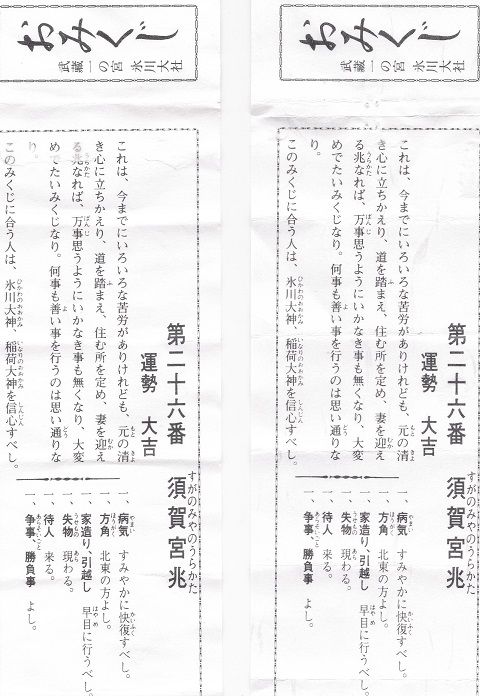 おみくじ
武蔵一の宮 氷川大社
第二十六番 須賀宮兆
すがのみやのうらかた
運勢 大吉
これは、今までにいろいろな苦労がありけれども、元の清
き心に立ちかえり、道を踏まえ、住む所を定め、妻を迎え
る兆なれば、万事思うようにいかなき事も無くなり、大変
めでたいみくじなり。何事も善い事を行うのは思い通りな
り。
このみくじに合う人は、氷川大神、稲荷大神を信心すべし。
一、病気 すみやかに快復すべし。
一、方角 北東の方よし。
一、家造り、引越し 早目に行うべし。
一、失物 現わる。
一、待人 来る。
一、争事、勝負事 よし。
おみくじ
武蔵一の宮 氷川大社
第二十六番 須賀宮兆
すがのみやのうらかた
運勢 大吉
これは、今までにいろいろな苦労がありけれども、元の清
き心に立ちかえり、道を踏まえ、住む所を定め、妻を迎え
る兆なれば、万事思うようにいかなき事も無くなり、大変
めでたいみくじなり。何事も善い事を行うのは思い通りな
り。
このみくじに合う人は、氷川大神、稲荷大神を信心すべし。
一、病気 すみやかに快復すべし。
一、方角 北東の方よし。
一、家造り、引越し 早目に行うべし。
一、失物 現わる。
一、待人 来る。
一、争事、勝負事 よし。